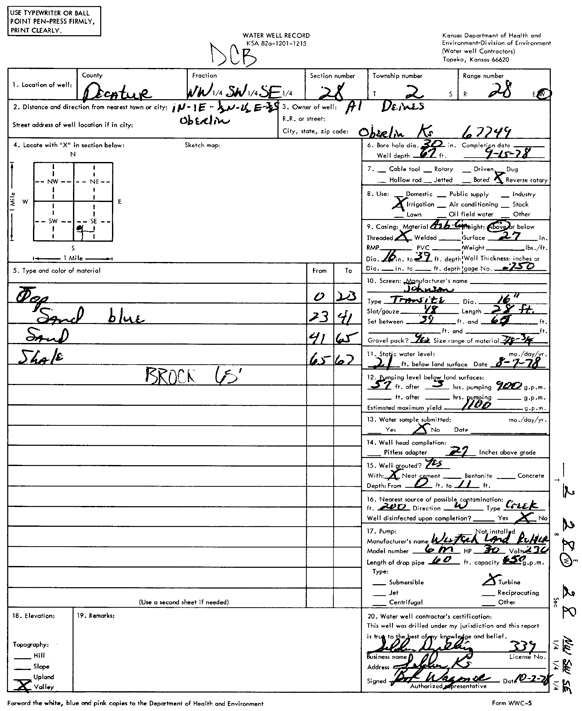 USE TYPEWRITER OR BALL
POINT PEN-PRESS FIRMLY,
PRINT CLEARLY.
WATER WELL RECORD
KSA 82a-1201-1215
Kansas Department of Health and
Environment-Division of Environment
(Water well Contractors)
Topeka, Kansas 66620
DCB
1. Location of well: County Decatur Fraction NW 1/4 SW 1/4 SE 1/4 Section number 28 Township number T 2 S Range number R 28 E W
2. Distance and direction from nearest town or city: 1N-1E-½N-¼E-3S Oberlin
Street address of well location if in city:
3. Owner of well: Al Deines
R.R. or street:
City, state, zip code: Oberlin Ks 67749
4. Locate with "X" in section below:
Sketch map:
N
NW NE
W E
SW SE
S
1 Mile
1 Mile
6. Bore hole dia. 30 in. Completion date
Well depth 67 ft. 9-15-78
7. Cable tool Rotary Driven Dug
Hollow rod Jetted Bored X Reverse rotary
8. Use: Domestic Public supply Industry
X Irrigation Air conditioning Stock
Lawn Oil field water Other
9. Casing: Material Height: Above or below
Threaded X Welded Surface 27 in.
RMP PVC Weight lbs./ft.
Dia. 16 in. to 39 ft. depth Wall Thickness: inches or
Dia. in. to ft. depth gage No. .750
5. Type and color of material From To
Top 0 23
Sand blue 23 41
Sand 41 65
Shale 65 67
BROCK 65'
10. Screen: Manufacturer's name
Johnson
Type Transite Dia. 16"
Slot/gauze 48 Length 28 ft.
Set between 39 ft. and 65 ft.
ft. and ft.
Gravel pack? Yes Size range of material
11. Static water level: mo./day/yr.
21 ft. below land surface Date 8-7-78
12. Pumping level below land surfaces:
57 ft. after 3 hrs. pumping 900 g.p.m.
ft. after hrs. pumping g.p.m.
Estimated maximum yield 1100 g.p.m.
13. Water sample submitted: mo./day/yr.
Yes X No Date
14. Well head completion:
Pitless adapter 27 Inches above grade
15. Well grouted? Yes
With: X Neat cement Bentonite Concrete
Depth: From 0 ft. to 11 ft.
16. Nearest source of possible contamination:
ft. 200 Direction W Type Creek
Well disinfected upon completion? Yes X No
17. Pump: Not installed
Manufacturer's name Western Land Roller
Model number 6M HP 30 Volts 230
Length of drop pipe 60 ft. capacity 850 g.p.m.
Type:
Submersible X Turbine
Jet Reciprocating
Centrifugal Other
(Use a second sheet if needed)
18. Elevation:
19. Remarks:
Topography:
Hill
Slope
Upland
X Valley
20. Water well contractor's certification:
This well was drilled under my jurisdiction and this report
is true to the best of my knowledge and belief.
339
Business name License No.
Address Ks
Signed Date 10-2-78
Authorized representative
Forward the white, blue and pink copies to the Department of Health and Environment
Form WWC-5
T 2
R 28 E W
Sec 28
1/4 1/4 1/4 NW SW SE